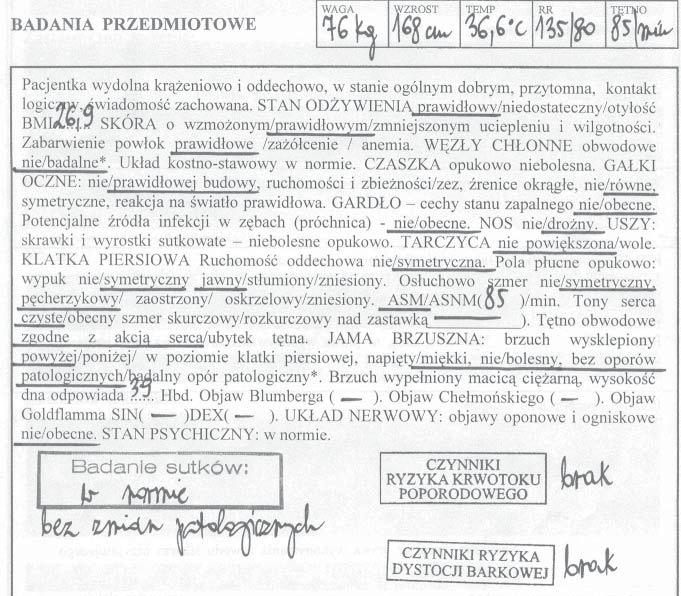 BADANIA PRZEDMIOTOWE
WAGA WZROST TEMP RR TĘTNO
76 kg 168 cm 36,6°C 135/80 85/min
Pacjentka wydolna krążeniowo i oddechowo, w stanie ogólnym dobrym, przytomna, kontakt
logiczny, świadomość zachowana. STAN ODŻYWIENIA prawidłowy/niedostateczny/otyłość
BMI 26,9 SKÓRA o wzmożonym/prawidłowym/zmniejszonym uciepleniu i wilgotności.
Zabarwienie powłok prawidłowe /zażółcenie / anemia. WĘZŁY CHŁONNE obwodowe
nie/badalne*. Układ kostno-stawowy w normie. CZASZKA opukowo niebolesna. GAŁKI
OCZNE: nie/prawidłowej budowy, ruchomości i zbieżności/zez, źrenice okrągłe, nie/równe,
symetryczne, reakcja na światło prawidłowa. GARDŁO – cechy stanu zapalnego nie/obecne.
Potencjalne źródła infekcji w zębach (próchnica) - nie/obecne. NOS nie/drożny. USZY:
skrawki i wyrostki sutkowate – niebolesne opukowo. TARCZYCA nie powiększona/wole.
KLATKA PIERSIOWA Ruchomość oddechowa nie/symetryczna. Pola płucne opukowo:
wypuk nie/symetryczny jawny/stłumiony/zniesiony. Osłuchowo szmer nie/symetryczny,
pęcherzykowy/ zaostrzony/ oskrzelowy/zniesiony. ASM/ASNM(85 )/min. Tony serca
czyste/obecny szmer skurczowy/rozkurczowy nad zastawką ). Tętno obwodowe
zgodne z akcją serca/ubytek tętna. JAMA BRZUSZNA: brzuch wysklepiony
powyżej/poniżej/ w poziomie klatki piersiowej, napięty/miękki, nie/bolesny, bez oporów
patologicznych/badalny opór patologiczny*. Brzuch wypełniony macicą ciężarną, wysokość
dna odpowiada 39 Hbd. Objaw Blumberga ( – ). Objaw Chełmońskiego ( – ). Objaw
Goldflamma SIN( – )DEX( – ). UKŁAD NERWOWY: objawy oponowe i ogniskowe
nie/obecne. STAN PSYCHICZNY: w normie.
Badanie sutków:
w normie
bez zmian patologicznych
CZYNNIKI
RYZYKA KRWOTOKU
POPORODOWEGO
brak
CZYNNIKI RYZYKA
DYSTOCJI BARKOWEJ
brak